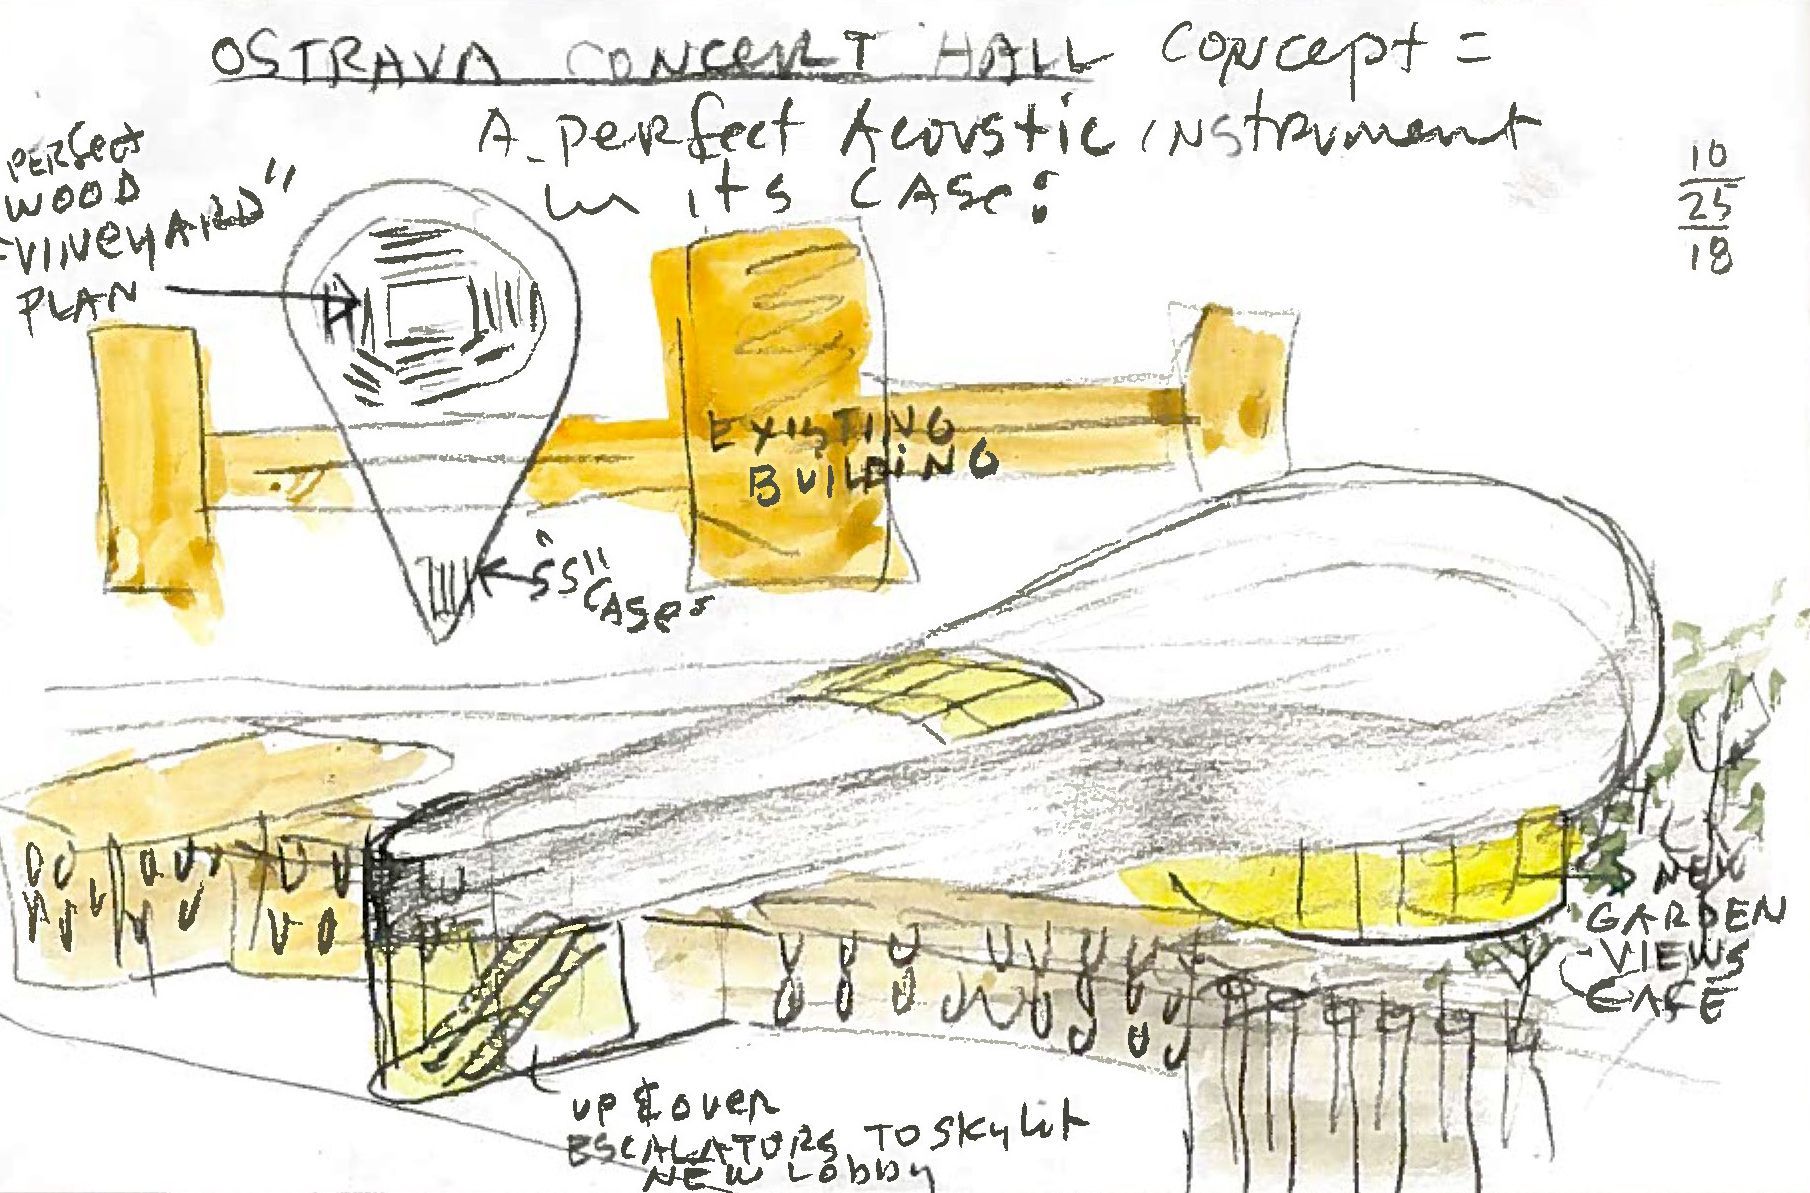 OSTRAVA CONCERT HALL Concept =
A perfect Acoustic instrument
in its CASE:
10
25
18
PERfect
WOOD
"VINEYARD"
PLAN
EXISTING
BUILDING
"SS"
CASE
NEW
GARDEN
VIEWS
CAFE
up & over
ESCALATORS TO SKYLit
NEW LOBBY